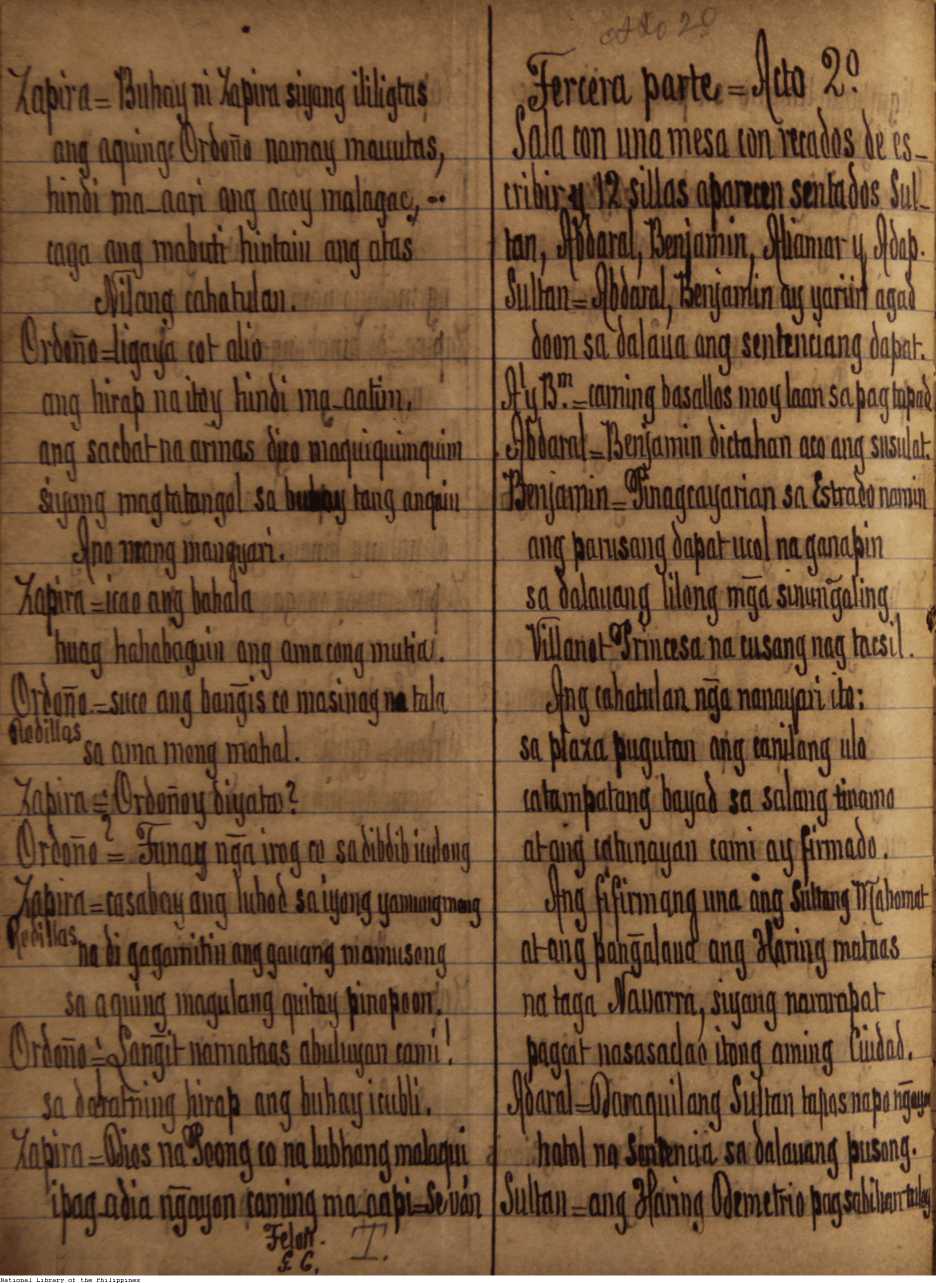 Zapira = Buhay ni Zapira siyang ililigtas
ang aquing Ordoño namay mauutas,
hindi ma-aari ang acoy malagac, --
caga ang mabuti hintain ang atas
Nilang cahatulan.
Ordoño = ligaya cot alio
ang hirap na itoy hindi ma-aatim,
ang sacbat na armas dico maquiquimquim
siyang magtatangol sa buhay tang anquin
Ano mang mangyari.
Zapira = icao ang bahala
huag hahabaguin ang ama cong mutia.
Ordoño = suco ang bangis co masinag na tala
Rodillas
sa ama mong mahal.
Zapira = Ordoñoy diyata?
Ordoño = Tunay nga irog co sa dibdib icudong
Zapira = casabay ang luhod sa iyong yamungmong
Rodillas
na di gagamitin ang gauang mamusong
sa aquing magulang quitay pinopoon.
Ordoño = Langit na mataas abuluyan cami!
sa daratning hirap ang buhay icubli.
Zapira = Dios na Poong co na lubhang malaqui
ipag-adia ngayon caming ma-aapi = Se ván
Telon.
T.
Acto 2º
Tercera parte = Acto 2º
Sala con una mesa con recados de es-
cribir y 12 sillas aparecen sentados Sul-
tan, Abdaral, Benjamin, Aliamar y Adap.
Sultan = Abdaral, Benjamin ay yariin agad
doon sa dalaua ang sentenciang dapat.
A. y Bm. = caming basallos moy laan sa pagtupad
Abdaral = Benjamin dictahan aco ang susulat.
Benjamin = Pinagcayarian sa Estrado namin
ang parusang dapat ucol na ganapin
sa dalauang lilong mga sinungaling
Villanot Princesa na cusang nag tacsil.
Ang cahatulan nga nanayari ito:
sa plaza pugutan ang canilang ulo
catampatang bayad sa salang tinamo
at ang catunayan cami ay firmado.
Ang fifirmang una ang Sultang Mahomat
at ang pangalaua ang Haring mataas
na taga Navarra, siyang nararapat
pagcat nasasaclao itong aming Ciudad.
Abdaral = Daraquilang Sultan tapos napo ngayon
hatol na Sentencia sa dalauang pusong.
Sultan = ang Haring Demetrio pagsabihan tuloy
National Library of the Philippines